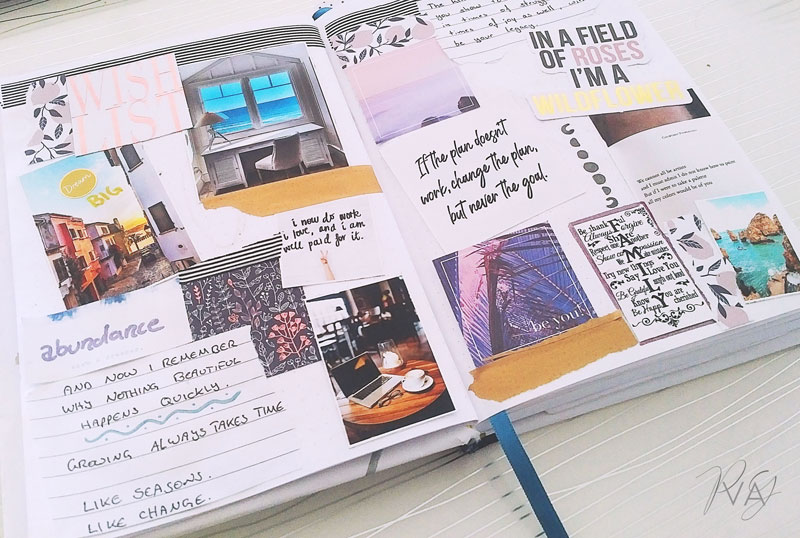 WISH
LIST
Dream
BIG
i now do work
i love, and i am
well paid for it.
abundance
AND NOW I REMEMBER
WHY NOTHING BEAUTIFUL
HAPPENS QUICKLY.
GROWING ALWAYS TAKES TIME
LIKE SEASONS.
LIKE CHANGE.
you show
in times of
times of joy as well
be your legacy.
IN A FIELD
OF ROSES
I'M A
WILDFLOWER
If the plan doesn't
work, change the plan,
but never the goal.
GOOOD
We cannot all be artists
and I must admit I do not know how to paint
But if I were to take a palette
all my colors would be of you
Be thankFul
Always Forgive
Share
Respect one Another
Show coMpassion
Try new thIngs
Say I Love You
Laugh out loud
Know You are
Be happY cherished
be you!